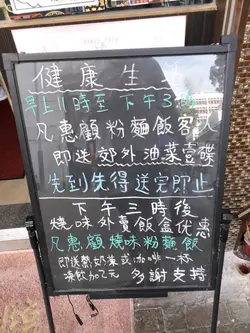 健康生活
早上11時至下午3時
凡惠顧粉麵飯客人
即送郊外油菜壹碟
先到先得送完即止
下午三時後
燒味外賣飯盒优惠
凡惠顧燒味粉麵飯
即送熱奶茶或咖啡一杯
凍飲加乙元 多謝支持